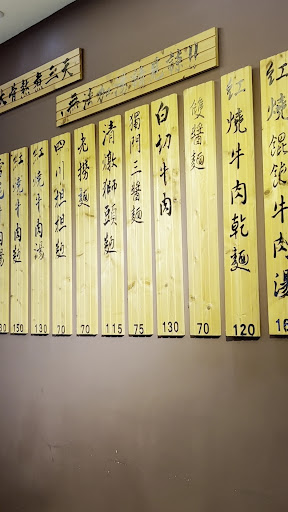 大骨熬煮三天
紅燒餛飩牛肉湯
16
紅燒牛肉乾麵
120
雙醬麵
70
白切牛肉
130
獨門三醬麵
75
清燉獅頭麵
115
老撈麵
70
四川担担麵
70
紅燒牛肉湯
130
紅燒牛肉麵
150